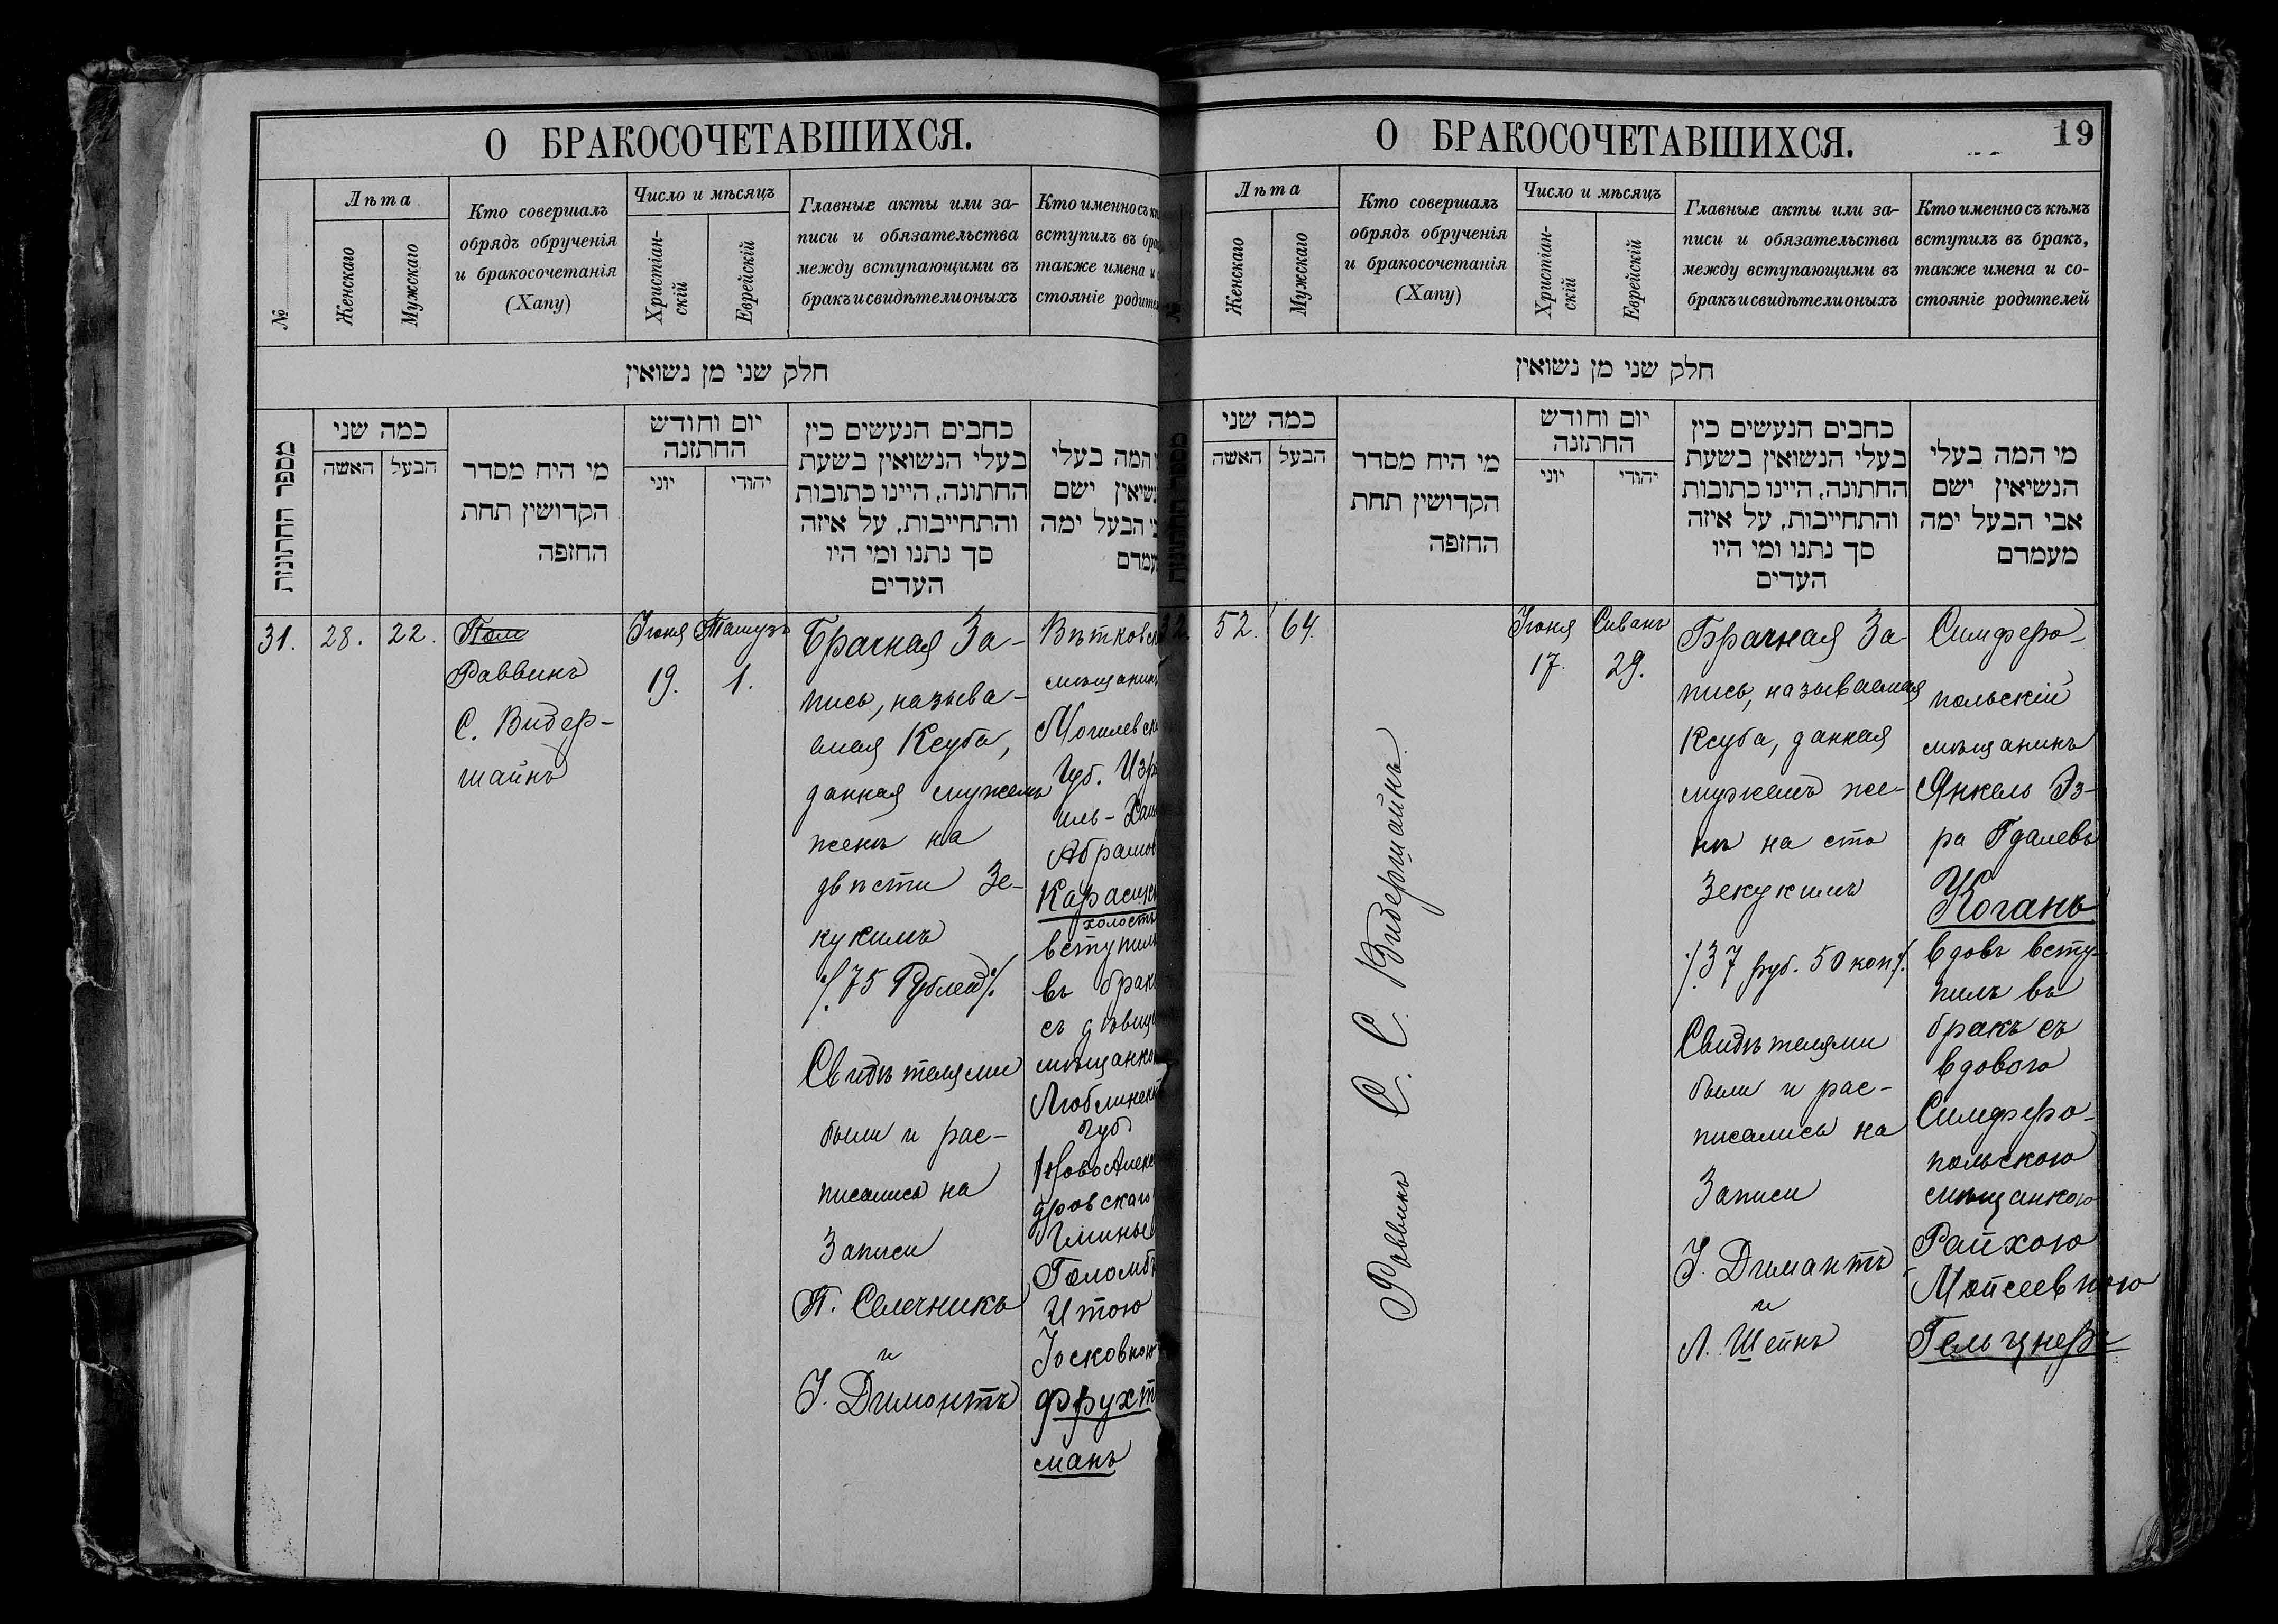 О БРАКОСОЧЕТАВШИХСЯ.
№
Лѣта
Женскаго
Мужскаго
Кто совершалъ
обрядъ обрученія
и бракосочетанія
(Хапу)
Число и мѣсяцъ
Христіан-
скій
Еврейскій
Главные акты или за-
писи и обязательства
между вступающими въ
бракъ и свидѣтели оныхъ
Кто именно съ
вступилъ въ
также имена и
стояніе
חלק שני מן נשואין
מספר החתונות
כמה שני
האשה
הבעל
מי היח מסדר
הקדושין תחת
החופה
יום וחודש
החתונה
יוני
יהודי
כתבים הנעשים בין
בעלי הנשואין בשעת
החתונה, היינו כתובות
והתחייבות, על איזה
סך נתנו ומי היו
העדים
המה בעלי
ישם
הבעל ימה
31.
28.
22.
Раввинъ
С. Видер-
шайнъ
Іюня
19.
Тамузъ
1.
Брачная За-
пись, называ-
емая Ксуба,
данная мужемъ
женѣ на
двѣсти Зе-
кукимъ
/75 Рублей/.
Свидѣтелями
были и рас-
писались на
Записи
П. Селечникъ
и
І. Димонтъ
мѣщанинъ
Губ.
холостъ
вступилъ
въ бракъ
съ
губ
Гмины
Итою
Іосковною
Фрухт
манъ
О БРАКОСОЧЕТАВШИХСЯ.
19
Лѣта
Женскаго
Мужскаго
Кто совершалъ
обрядъ обрученія
и бракосочетанія
(Хапу)
Число и мѣсяцъ
Христіан-
скій
Еврейскій
Главные акты или за-
писи и обязательства
между вступающими въ
бракъ и свидѣтели оныхъ
Кто именно съ кѣмъ
вступилъ въ бракъ,
также имена и со-
стояніе родителей
חלק שני מן נשואין
כמה שני
האשה
הבעל
מי היח מסדר
הקדושין תחת
החופה
יום וחודש
החתונה
יוני
יהודי
כתבים הנעשים בין
בעלי הנשואין בשעת
החתונה, היינו כתובות
והתחייבות, על איזה
סך נתנו ומי היו
העדים
מי המה בעלי
הנשיאין ישם
אבי הבעל ימה
מעמדם
32.
52.
64.
Раввинъ С. С. Видершайнъ
Іюня
17.
Сиванъ
29.
Брачная За-
пись, называемая
Ксуба, данная
мужемъ же-
нѣ на сто
Зекукимъ
/37 руб. 50 коп/.
Свидѣтелями
были и рас-
писались на
Записи
І. Димантъ
и
Л. Шейнъ
Симферо-
польскій
мѣщанинъ
Янкель Эз-
ра Гдалевъ
Коганъ
вдовъ всту-
пилъ въ
бракъ съ
вдовою
Симферо-
польскою
мѣщанкою
Райхою
Мойсеевною
Гельцнеръ